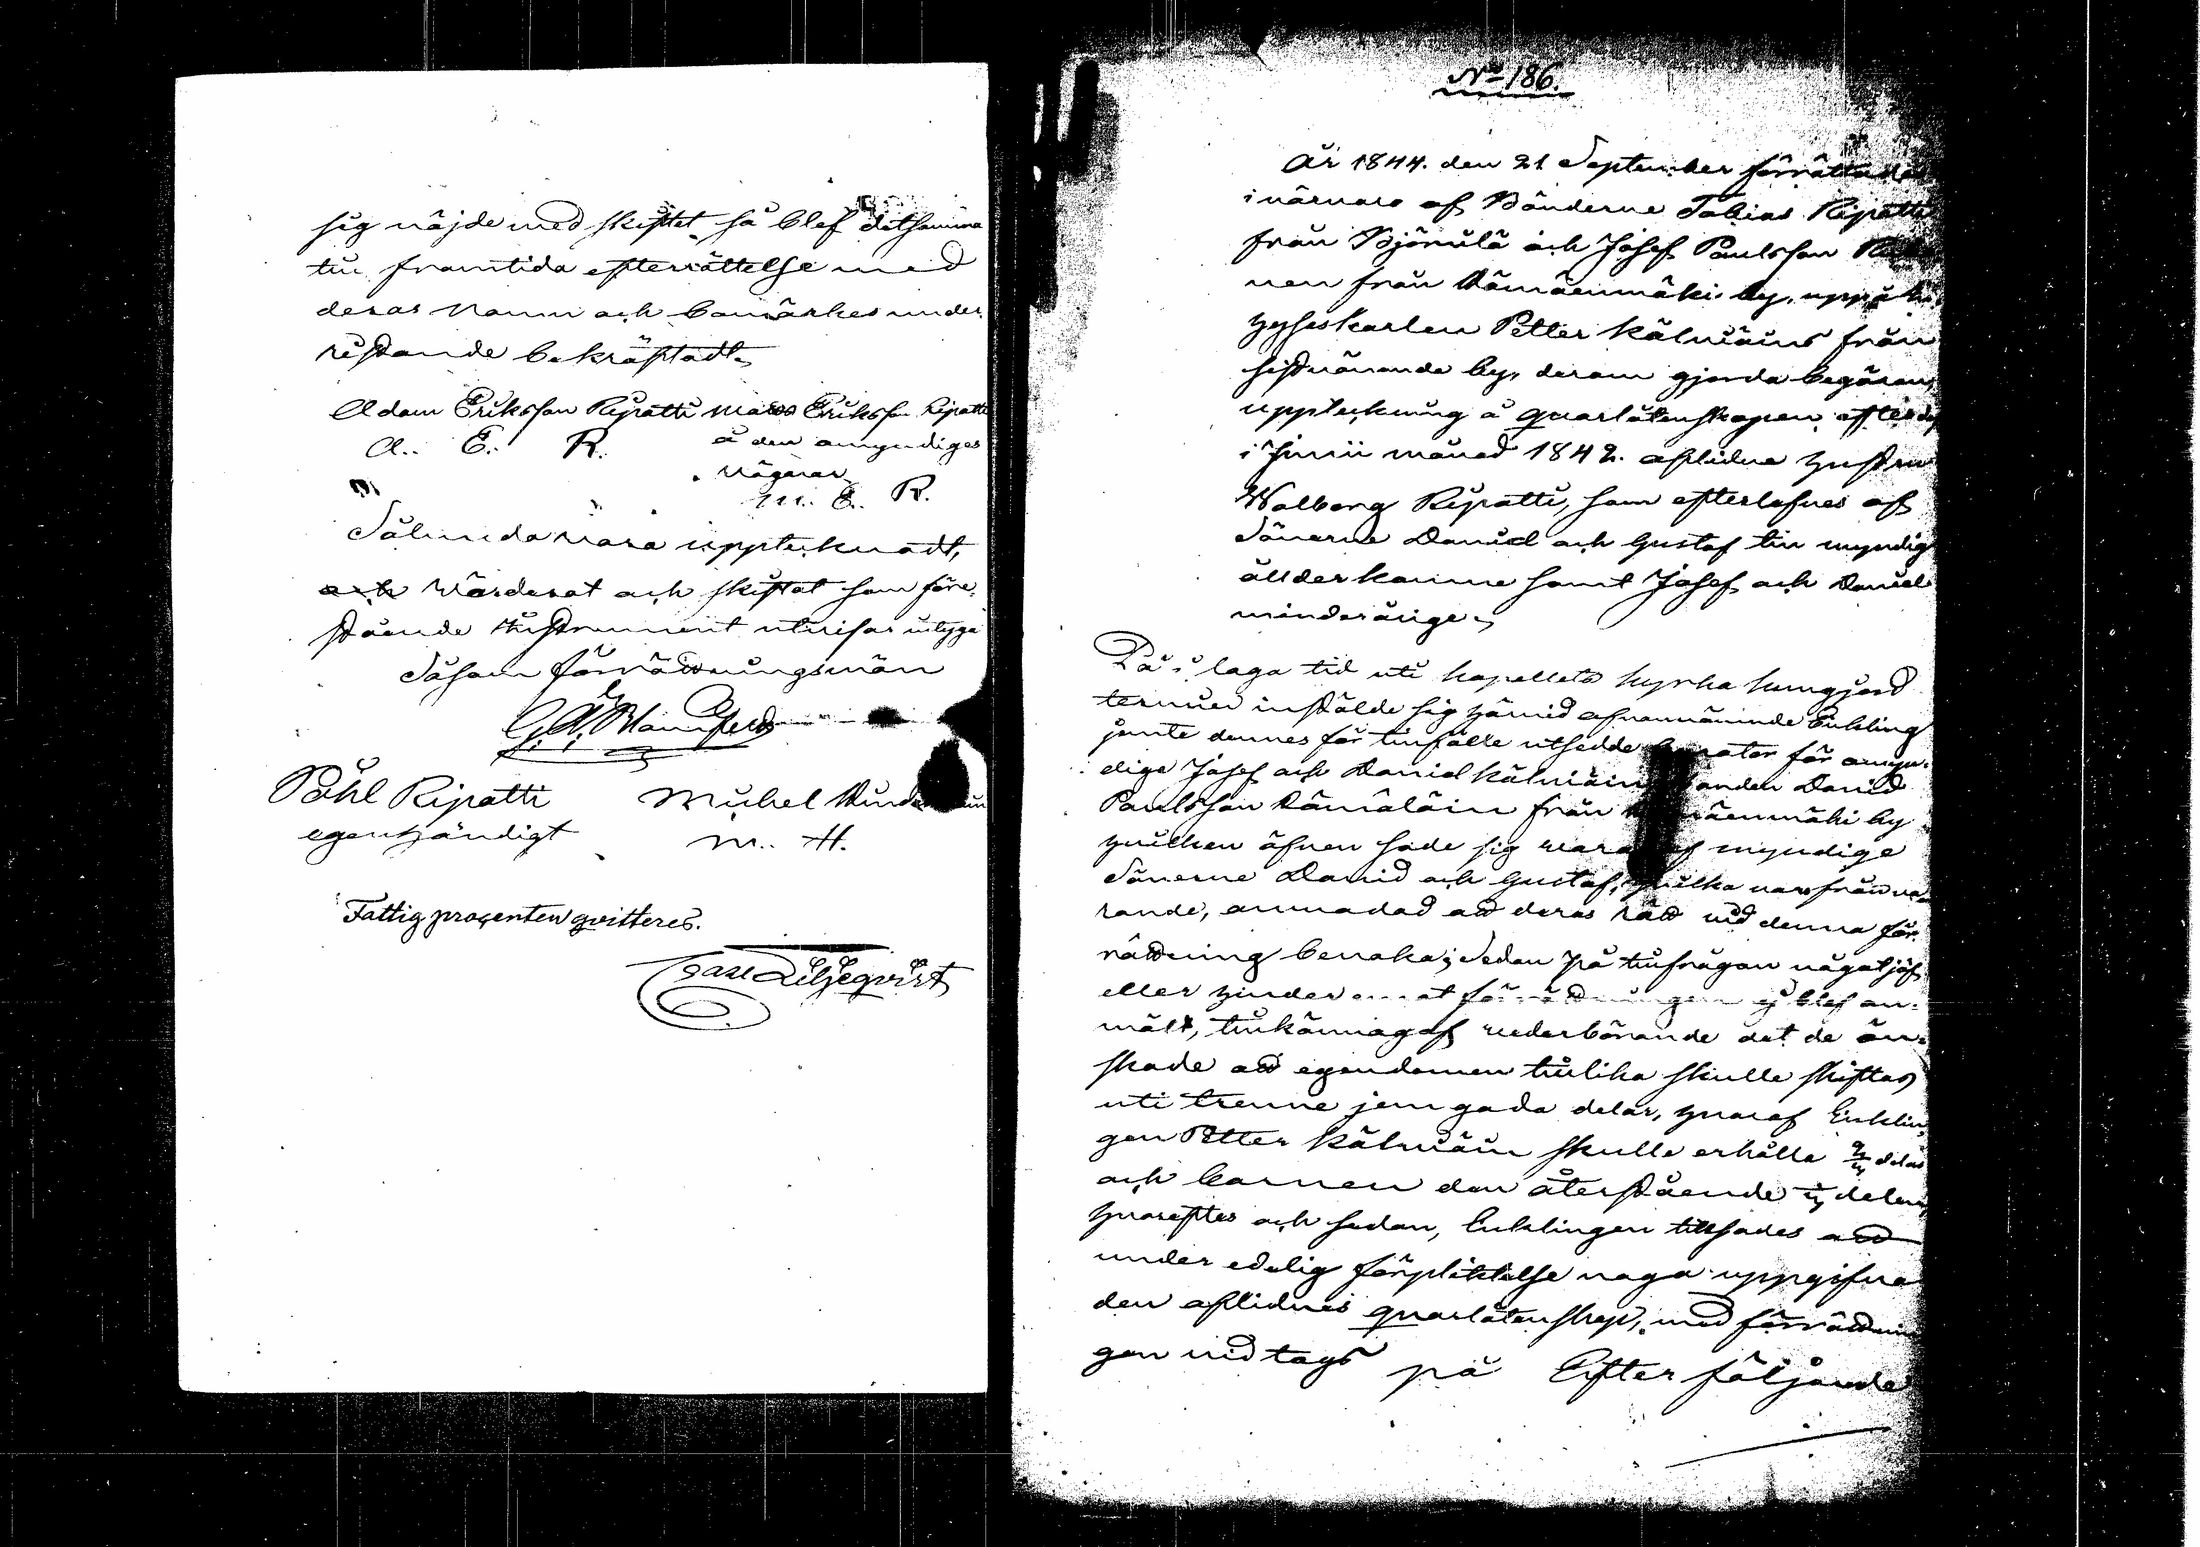 sig nöjde med skiftet så blef detsamma
till framtida efterrättelse med
deras namn och bomärkes under
ristande bekräftadt,
Adam Eriksson Ripatti Mats Eriksson Ripatti
A. E. R. å den omyndiges
vägnar
M. E. R.
Sålunda vara uppteknadt,
och värderat och skiftat som före
stående Instrument utvisar intyga
Såsom förrättningsmän
G. A. Blomfelt
Påhl Ripatti Mickel
egenhändigt M. H.
Fattig procenten qvitteres.
Isac Liljeqvist
No 186.
År 1844. den 21 September förrättades
i närvaro af Bönderne Tobias Ripatti
från Björnilä och Josef Paulsson
nen från Dämäenmäki by, uppå
hyseskarlen Petter Kälviäins från
sistnämnde by, derom gjorda begäran,
uppteckning å qvarlåtenskapen efter des
i Junii månad 1842. aflidna hustru
Walborg Ripatti, som efterlefves af
Sönerne David och Gustaf till myndig
ållder komne samt Josef och Daniel
minderårige.
På i laga tid uti kapellets kyrka kungjord
termin instälde sig härvid ofvannämnde Enkling
jemte dennes för tillfälle utsedde för omyn-
dige Josef och Daniel Kälviäin David
Paulsson Dämäläin från by
hvilken äfven sade sig vara af myndige
Sönerne David och Gustaf, hvilka voro frånva
rande, anmodad att deras rätt vid denna för
rättning bevaka; Sedan på tillfrågan något jäf
eller hinder emot förrättningen ej blef an-
mält, tillkännagaf vederbörande det de ön-
skade att egendomen tillika skulle skiftas
uti trenne jemgoda delar, hvaraf Enklin
gen Petter Kälviäin skulle erhålla 2/3 delar
och barnen den återstående 1/3 delen,
hvarefter och sedan, Enklingen tillsades att
under edelig förpliktelse noga uppgifva
den aflidnes qvarlåtenskap, med förrättnin
gen vidtogs på Efter följande